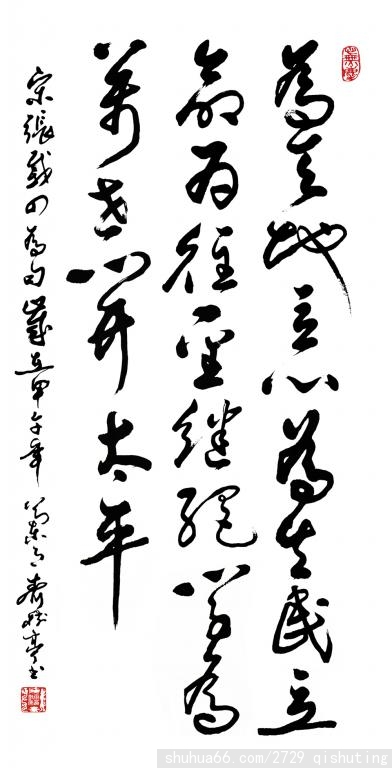 為天地立心為生民立
命为往聖繼絕學為
萬世開太平
宋張載四為句歲在甲午年 齊樹亭書
shuhua66.com/2729 qishuting